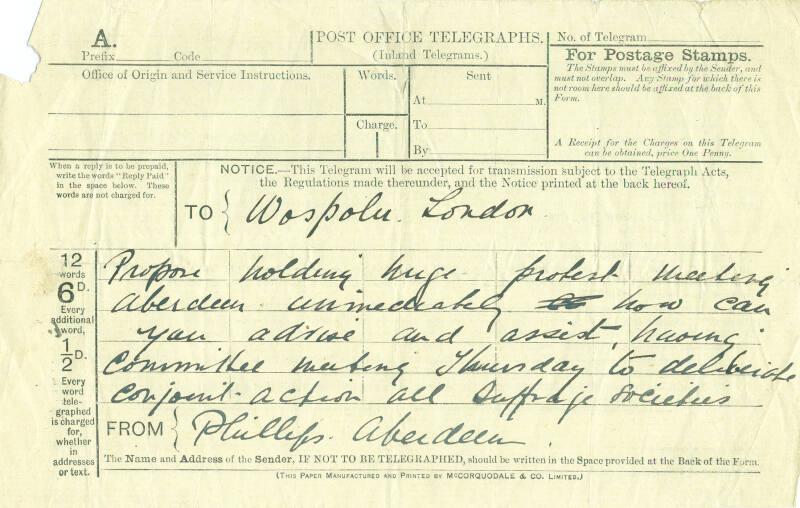 A.
Prefix Code
POST OFFICE TELEGRAPHS.
(Inland Telegrams.)
No. of Telegram
For Postage Stamps.
The Stamps must be affixed by the Sender, and
must not overlap. Any Stamp for which there is
not room here should be affixed at the back of this
Form.
A Receipt for the Charges on this Telegram
can be obtained, price One Penny.
Office of Origin and Service Instructions.
Words.
Charge.
Sent
At M.
To
By
When a reply is to be prepaid,
write the words "Reply Paid"
in the space below. These
words are not charged for.
NOTICE.—This Telegram will be accepted for transmission subject to the Telegraph Acts,
the Regulations made thereunder, and the Notice printed at the back hereof.
TO { Wospolu. London.
12
words
6D.
Every
additional
word,
1/2 D.
Every
word
tele-
graphed
is charged
for,
whether
in
addresses
or text.
Propose holding huge protest meeting
Aberdeen immediately how can
you advise and assist, having
committee meeting Thursday to deliberate
conjoint-action all Suffrage Societies
FROM { Phillips. Aberdeen.
The Name and Address of the Sender, IF NOT TO BE TELEGRAPHED, should be written in the Space provided at the Back of the Form.
(THIS PAPER MANUFACTURED AND PRINTED BY MCCORQUODALE & CO. LIMITED.)